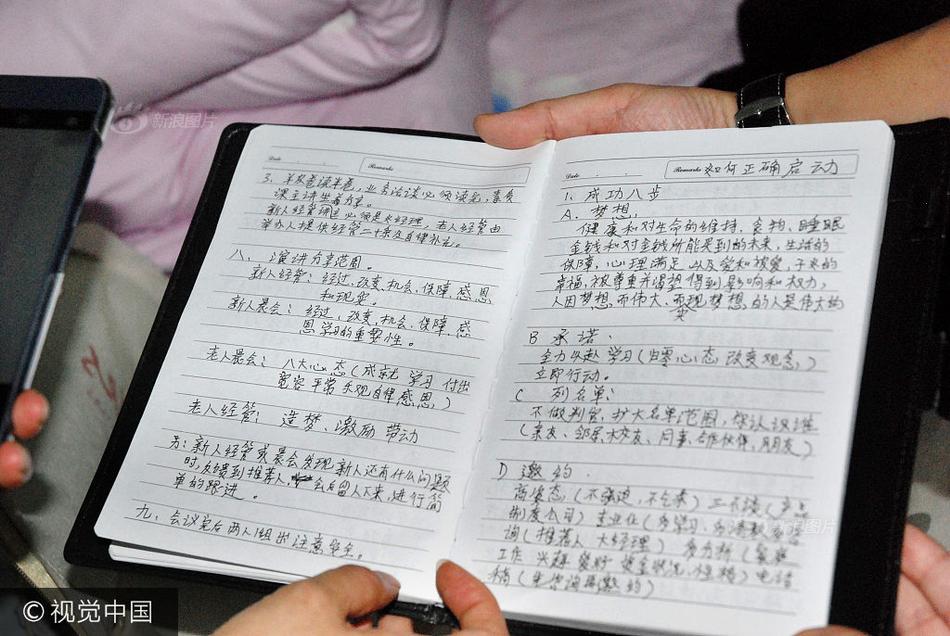 Date
Remarks
3、
新人经管讲述必须是大经理，老人经管由
举办人提供经管二十条及自律补充。
八、演讲分享范围。
新人经管：经过、改变、机会、保障、感恩
和现实。
新人晨会：经过、改变、机会、保障、感
恩学习的重要性。
老人晨会：八大心态（成就 学习 付出
宽容 平常 乐观 自律 感恩）
老人经管：造梦、激励 带动
另：新人经管或晨会发现新人还有什么问题
时，反馈到推荐人，会后留人下来，进行简
单的跟进。
九、会议完后两人1组出注意安全。
Date
Remarks 如何正确启动
1、成功八步
A、梦想，
健康和对生命的维持、食物、睡眠
金钱和对金钱所能买到的未来，生活的
保障，心理满足 以及爱和被爱，子女的
幸福，被尊重并渴望得到影响和权力，
人因梦想而伟大，而现梦想的人是伟大的
实
B 承诺．
全力以赴 学习（归零心态 改变观念）
立即行动。
C 列名单：
不做判官，扩大名单范围，保认识性
（亲友、邻居、校友、同事、合作伙伴、朋友）
D 邀约．
高姿态（不强迫，不乞求）三不谈（产品
制度公司）专业化
询（推荐人 大经理）多分析（家庭
工作 兴趣 爱好 资金状况、性格）电话
稿
新浪图片
新浪图片
© 视觉中国